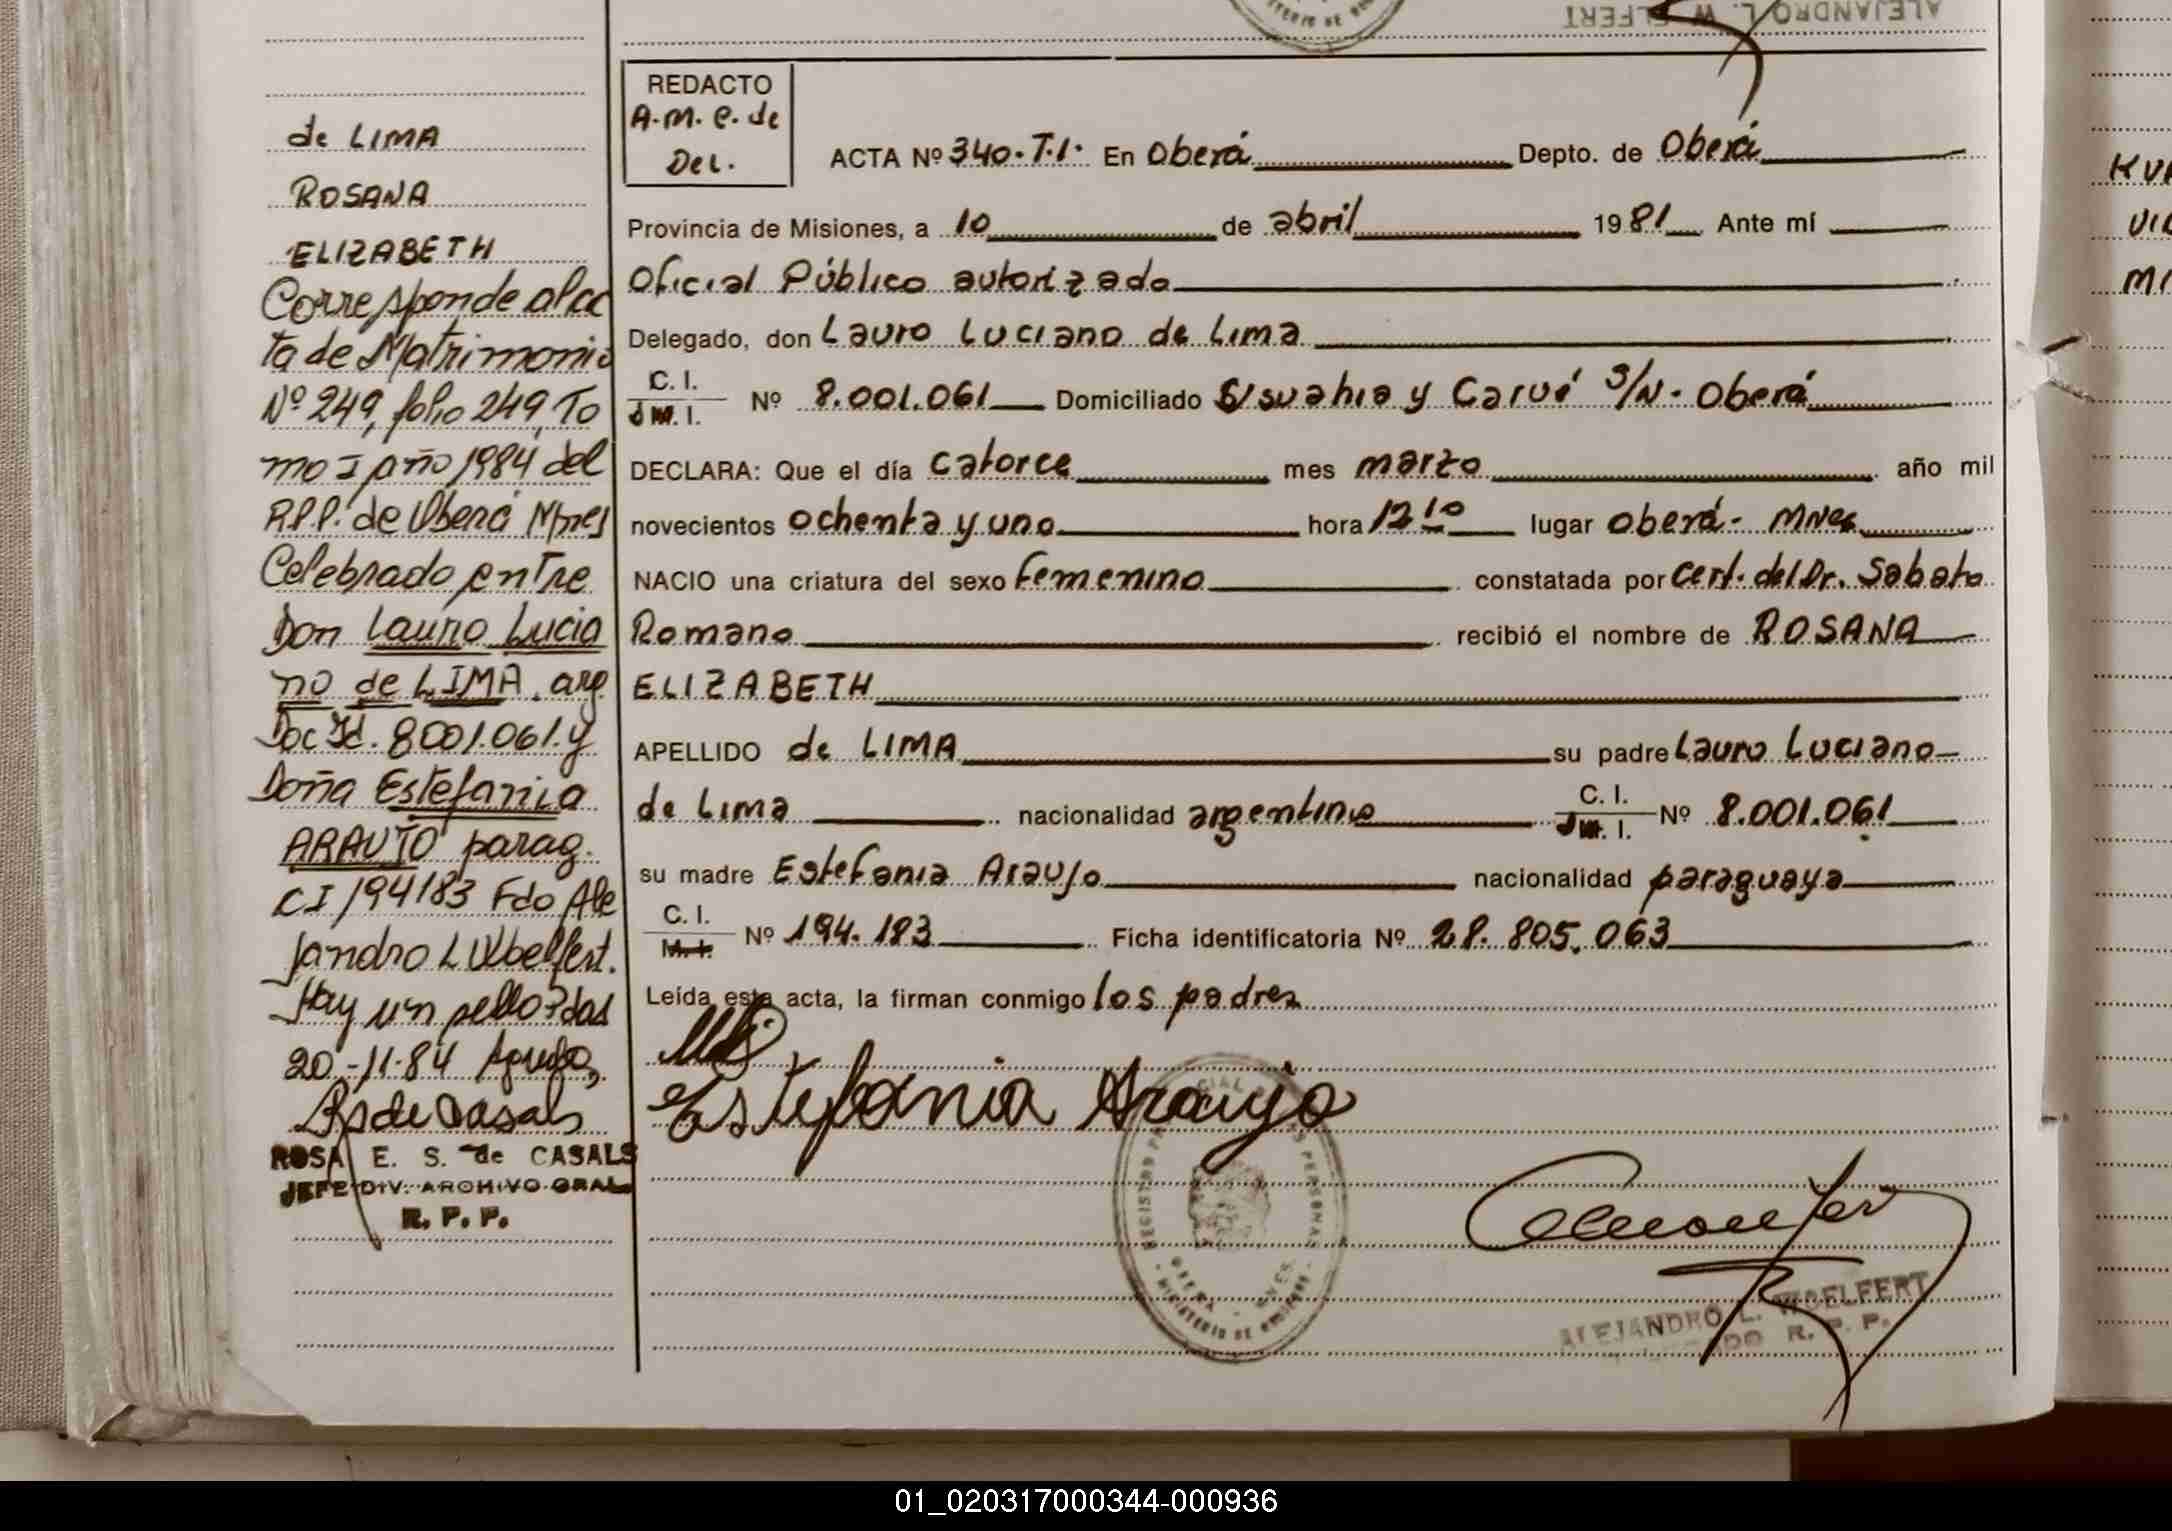 ALEJANDRO L. W ELFERT
de LIMA
ROSANA
ELIZABETH
Corresponde al ac
ta de Matrimonio
Nº 249, folio 249, To
mo I año 1984 del
R.P.P. de Oberá Mnes
Celebrado entre
Don Lauro Lucia
no de LIMA. arg.
Doc Id. 8001.061. y
Doña Estefania
ARAUJO parag.
CI 194183 Fdo Ale
jandro L Wbelfert.
Hay un sello Pdas
20-11-84
Rs de Casals
ROSA E. S. de CASALS
JEFE DIV. ARCHIVO GRAL
R. P. P.
REDACTO
A.M.C. de
Del.
ACTA Nº 340. T.I. En Oberá Depto. de Oberá
Provincia de Misiones, a 10 de abril 1981 Ante mí
Oficial Público autorizado
Delegado, don Lauro Luciano de Lima
C. I. Nº 8.001.061 Domiciliado y Carué S/N. Oberá
M. I.
DECLARA: Que el día catorce mes marzo año mil
novecientos ochenta y uno hora 12 10 lugar Oberá - Mnes
NACIO una criatura del sexo femenino constatada por cert. del Dr. Sabato
Romano recibió el nombre de ROSANA
ELIZABETH
APELLIDO de LIMA su padre Lauro Luciano
de Lima nacionalidad argentino C. I. Nº 8.001.061
M. I.
su madre Estefania Araujo nacionalidad paraguaya
C. I. Nº 194.183 Ficha identificatoria Nº 28.805.063
M. I.
Leída esta acta, la firman conmigo los padres
Estefania Araujo
MINISTERIO DE
OBERA - MNES.
ALEJANDRO L. WOELFERT
R. P. P.
KU
VI
MI
01_020317000344-000936